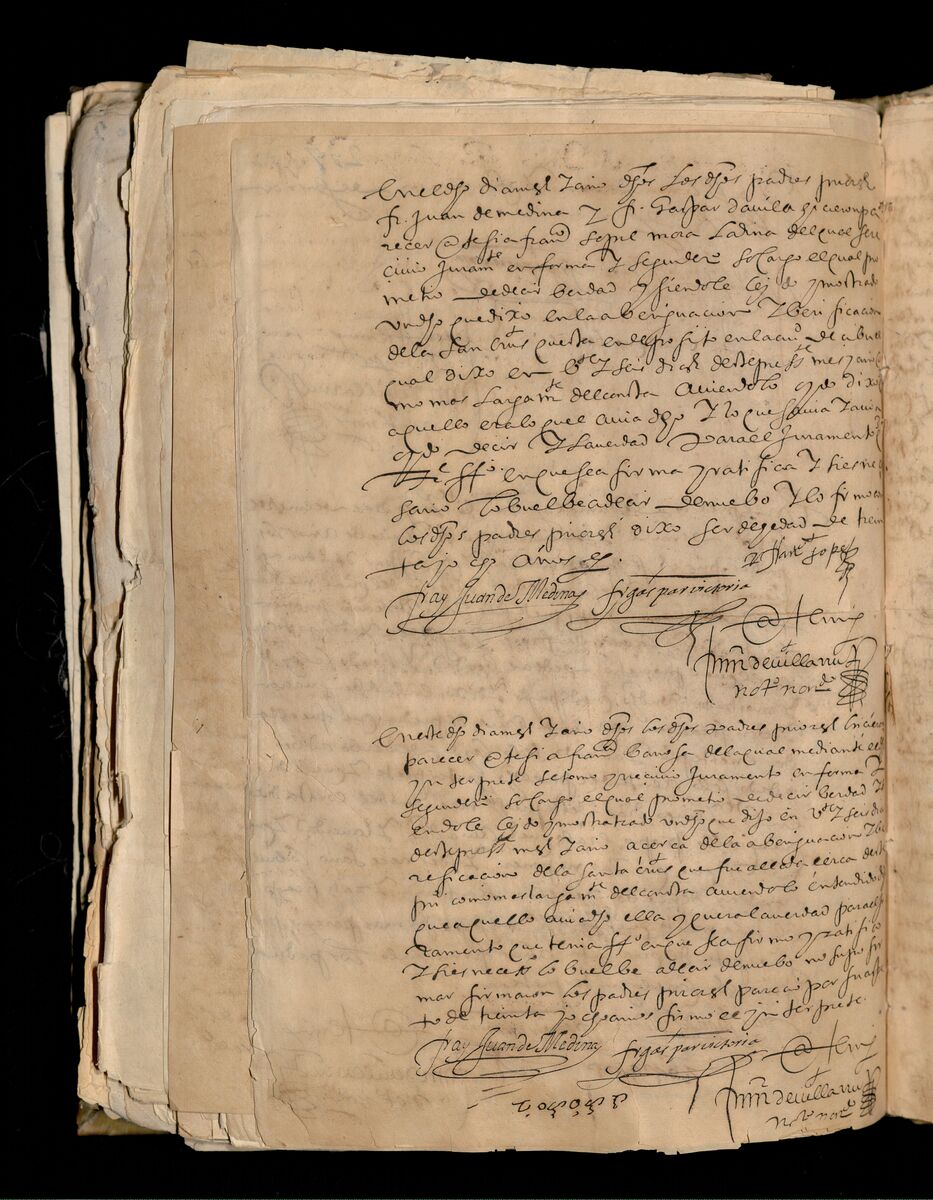 En el dho dia mes y año dhos los dhos padres priores
fr. Juan de medina y fr. Gaspar davila hicieron pa
recer @ tesia fran.co lopez mora ladina del qual se re
civio Juram.to en forma y segun der.o so cargo el qual pro
metio de decir berdad y siendole leydo y mostrado
un dho que dixo en la aberiguacion y berificacion
de la san cruz puesta en deposito en la
qual dixo en b.te y seis dias deste press.te mes y año co
mo mas larga m.te del consta aviendolo oydo dixo
aquello era lo que avia dho y lo que savia
oydo decir y la verdad para el Juramento q
ff.o en que se afirma y ratifica y si es ne
sario lo buelbe a decir de nuebo y lo firmo con
los dhos padres priores dixo ser de hedad de trein
ta y ocho años
fran.co lopez
fray Juan de Medina fr gaspar victoria
mrn de villarru
not.o nom.do
En este dho dia mes y año dhos los dhos padres priores hicieron
parecer @ tesi a fran.ca barosa de la qual mediante el
ynterprete se tomo y recivio Juramento en forma y
segun der.o so cargo el qual prometio de decir berdad y
endole leydo y mostrado un dho que dijo en b.te y seis dias
deste press.te mes y año acerca de la aberiguacion y be
rificacion de la santa cruz que fue allada cerca deste
pu.o como mas larga m.te del consta aviendolo entendido dixo
que aquello avia dho ella y que era la verdad para el Ju
ramento que tenia ff.o en que se afirmo y ratifico
y si es necess.o lo buelbe a decir de nuebo no supo fir
mar firmaron los padres priores parecio por su aspe
to de treinta y ocho años firmo el ynterprete.
fray Juan de Medina fr gaspar victoria
mrn de villarru
not.o nom.do